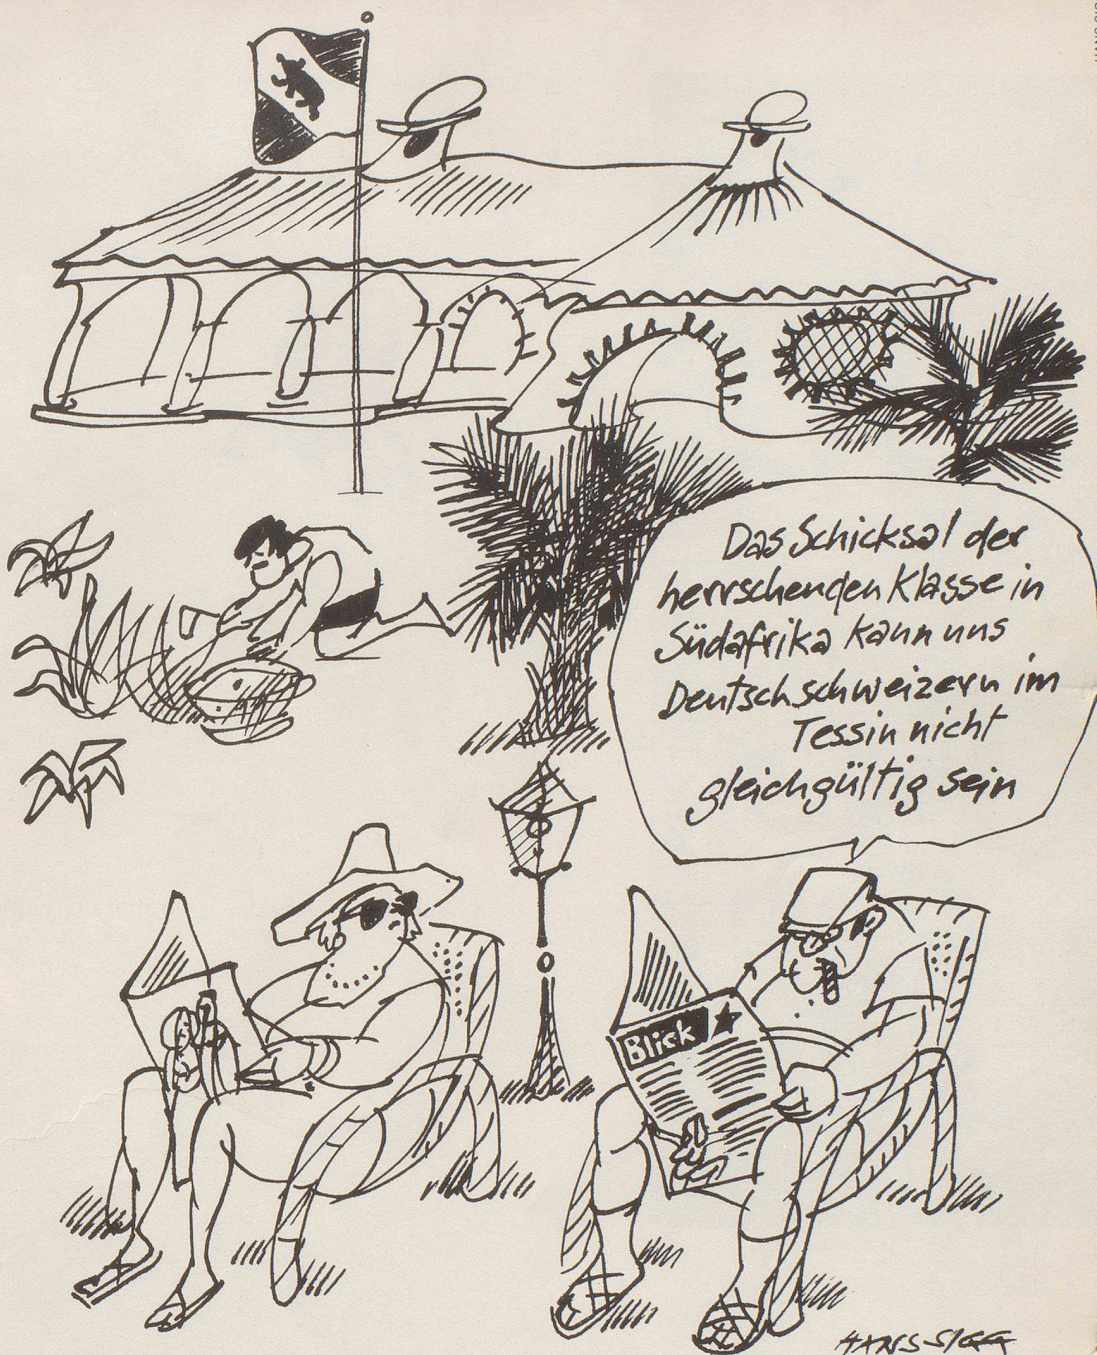 Das Schicksal der
herrschenden Klasse in
Südafrika kann uns
Deutschschweizern im
Tessin nicht
gleichgültig sein
Blick
HANS SIGG